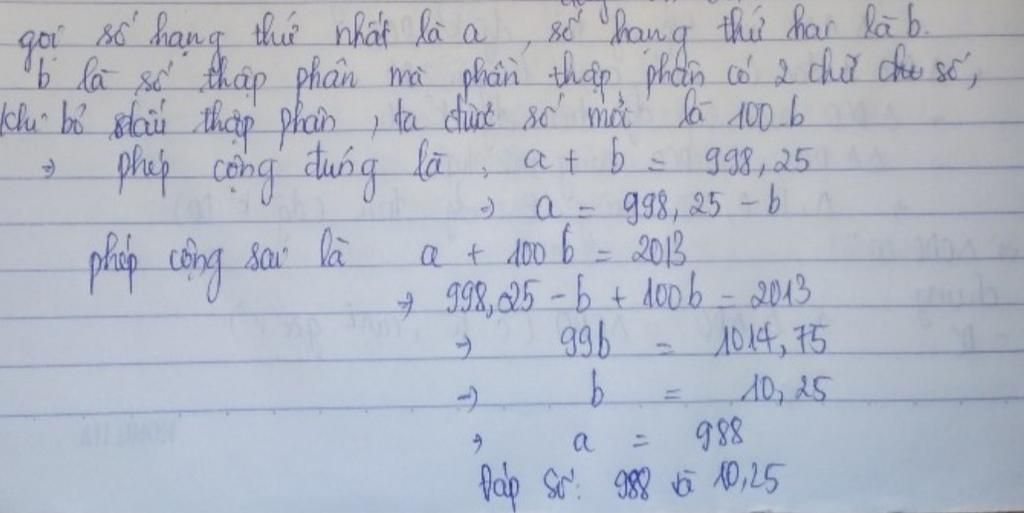 gọi số hạng thứ nhất là a, số hạng thứ hai là b.
b là số thập phân mà phần thập phân có 2 chữ số,
khi bỏ dấu thập phân, ta được số mới là 100.b
⇒ phép cộng đúng là: a + b = 998,25
⇒ a = 998,25 - b
phép cộng sai là a + 100b = 2013
⇒ 998,25 - b + 100b = 2013
⇒ 99b = 1014,75
⇒ b = 10,25
⇒ a = 988
Đáp số: 988 và 10,25